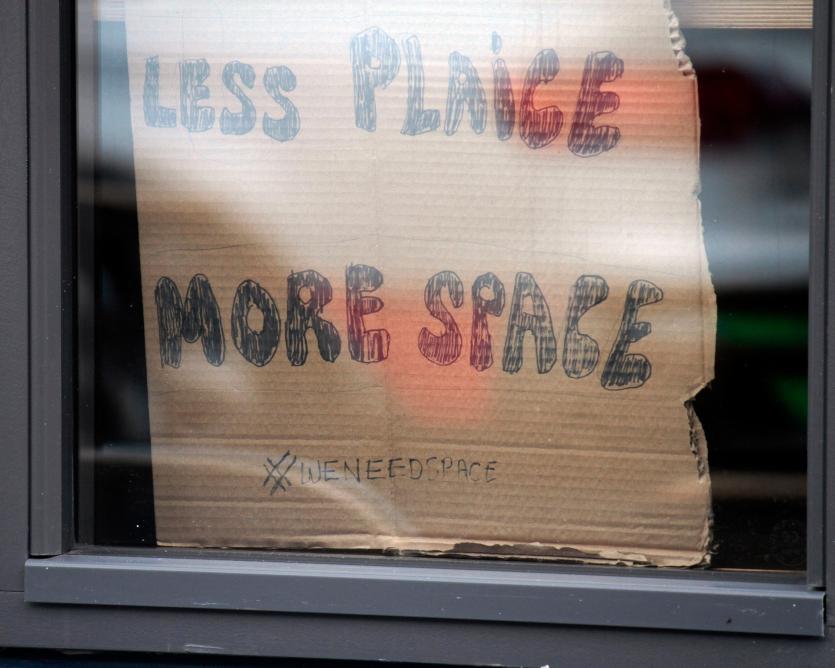 LESS PLAiCE
MORE SPACE
#WENEEDSPACE